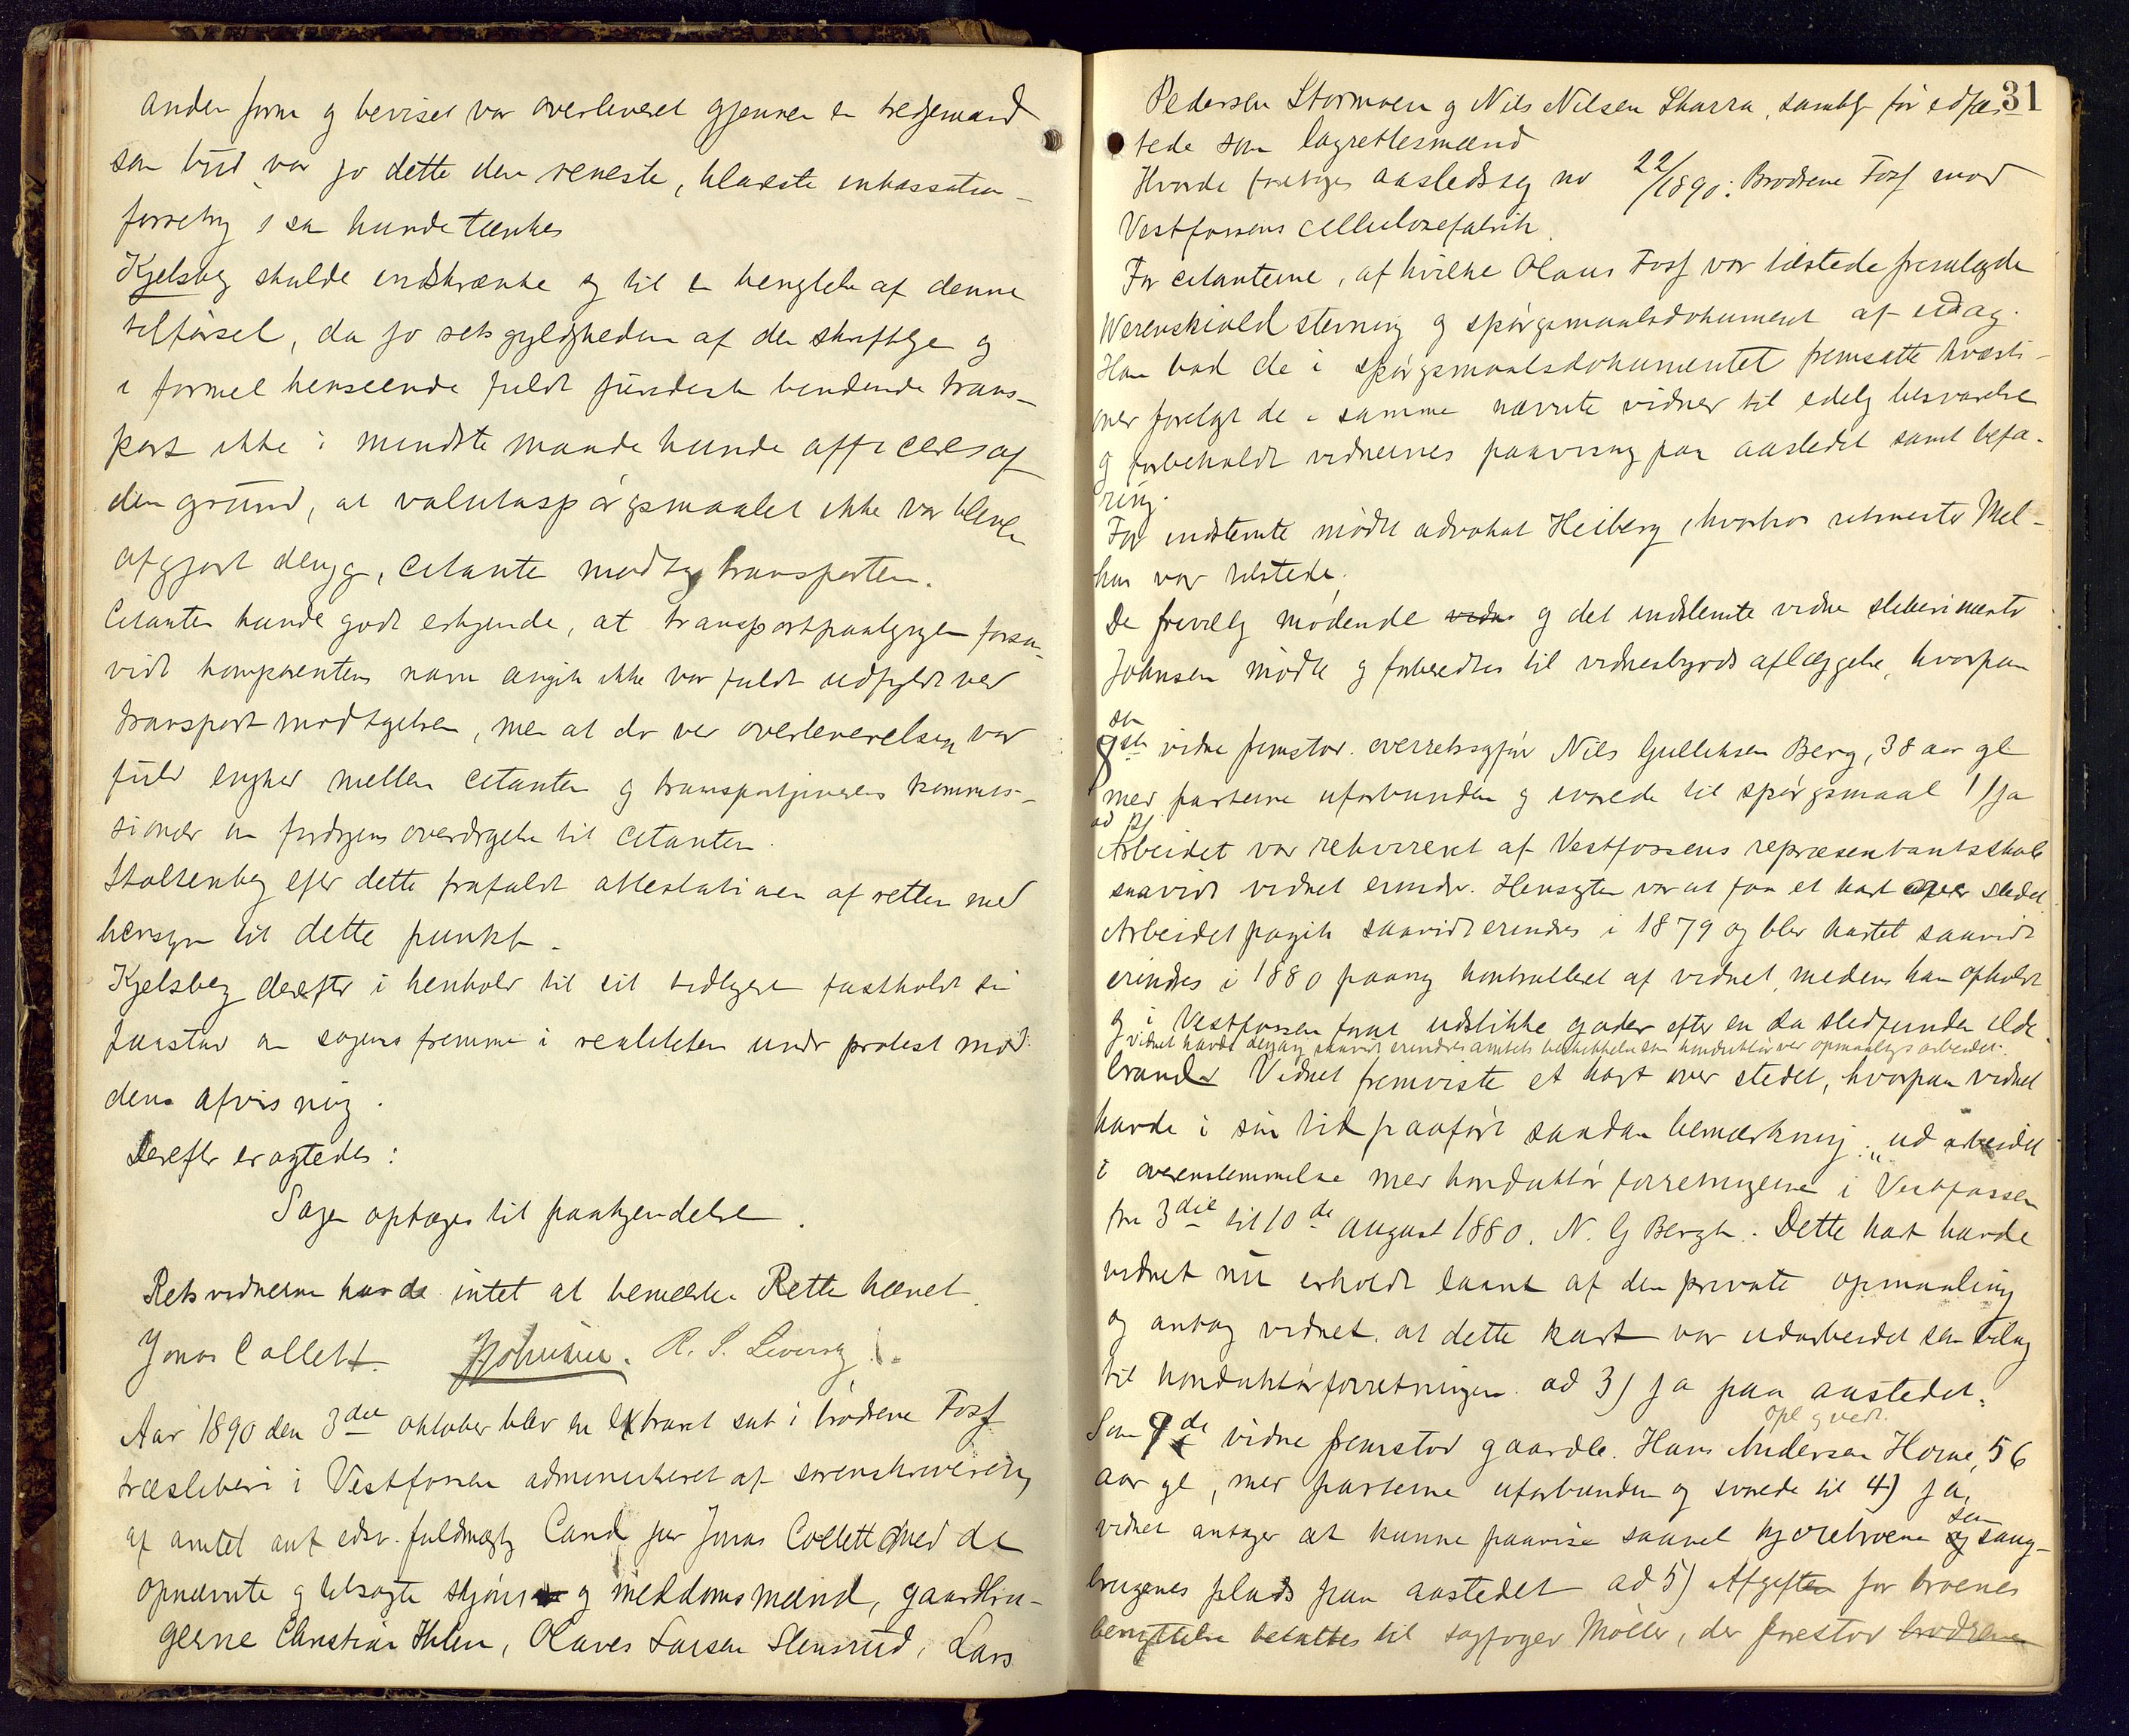 anden form og beviset var overleveret gjennem en tredjemand
som bud, var jo dette den reneste, klareste inkassation-
forretng, som kunde tænkes
Kjelsbeg skulde indskrænke sig til en benegtelse af denne
tilførsel, da jo retsgyldigheden af den skriftlige og
i formel henseende fuldt juridisk bindende trans-
port ikke i mindste maade kunde afficeres af
den grund, at valutaspørgsmaalet ikke var bleven
afgjort dengg, citanten modtog transporten.
Citanten kunde godt erkjende, at transportpaategngen forsaa-
vidt komparentens navn angik ikke var fuldt udfyldt ved
transportmodtagelsen, men at der ved overleverelsen var
fuld enighed mellem citanten og transportgiverens kommis-
sionær om fordrgens overdragelse til citanten.
Stoltenbeg efter dette frafaldt attestationen af retten med
hensyn til dette punkt.
Kjelsbeg derefter i henhold til sit tidligere fastholdt sin
paastand om sagens fremme i realiteten under protest mod
dens afvisning.
Derefter eragtedes:
Sagen optages til paakjendelse.
Retsvidnerne havde intet at bemærke. Retten hævet.
Jonas Collett. Johnsen. R. S.
Aar 1890 den 3die oktober blev en extraret sat i brødrene Foss
træsliberi i Vestfossen administreret af sorenskriverens
af amtet ant edsv. fuldmægtig Cand jur Jonas Collett med de
opnævnte og tilsagte skjøns og meddomsmænd, gaardbru-
gerne Christian Holen, Olaves Larsen Stensrud, Lars
31
Pedersen Stormoen og Nils Nilsen Skarra, samtlg før edfæs-
tede som lagrettesmænd
Hvorde foretoges aastedssag no 22/1890: Brødrene Foss mod
Vestfossens cellulosefabrik.
For citanterne, af hvilke Olaus Foss var tilstede fremlagde
Werenskiold stevning og spørgsmaalsdokument af idag.
Han bad de i spørgsmaalsdokumentet fremsatte kvæsti-
oner forelagt de i samme nævnte vidner til edelig besvarelse
og forbeholdt vidnernes paavisng paa aastedet samt befa-
ring.
For indstevnte mødte advokat Heiberg, hvorhos ritmester Mel-
hus var tilstede.
De frivillig mødende vidner og det indstevnte vidne sliberimester
Johnsen mødte og forberedtes til vidnesbyrds aflæggelse, hvorpaa
som
1ste vidne fremstod overretssagfør Nils Gulliksen Berg, 38 aar gl
med parterne uforbunden og svarede til spørgsmaal 1) Ja
ad 2)
Arbeidet var rekvireret af Vestfossens repræsentantskab
saavidt vidnet erindr. Hensigten var at faa et kart over stedet.
Arbeidet foregik saavidt erindres i 1879 og blev kartet saavidt
erindres i 1880 paany kontrolleret af vidnet, medens han opholdt
sig i Vestfossen forat udstikke gader efter en da stedfunden ilde-
vidnet havde dengang saavidt erindres amtets beskikkelse som konduktør ved opmaalingsarbeidet.
brand. Vidnet fremviste et kart over stedet, hvorpaa vidnet
havde i sin tid paaført saadan bemærkning: „udarbeidet
i overenstemmelse med konduktørforretningerne i Vestfossen
fra 3die til 10de august 1880. N. G Bergh. Dette kart havde
vidnet nu erholdt laant af den private opmaaling
og antog vidnet, at dette kart var udarbeidet som bilag
til konduktørforretningen. ad 3) ja paa aastedet.
opl g vedt.
Som 2de vidne fremstod gaardbr. Hans Andersen Horne, 56
aar gl, med parterne uforbunden og svarede til 4) Ja,
vidnet antager at kunne paavise saavel kjørebroene som saug-
brugenes plads paa aastedet ad 5) Afgiften for broenes
benyttelse betaltes til sagfører Møller, der forestod brødrene